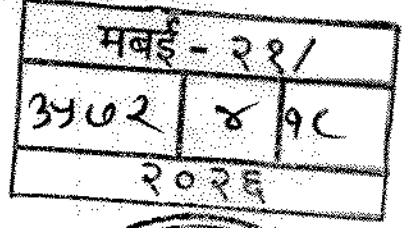 मबई - २१/
३५७२ ४ १८
२०२६